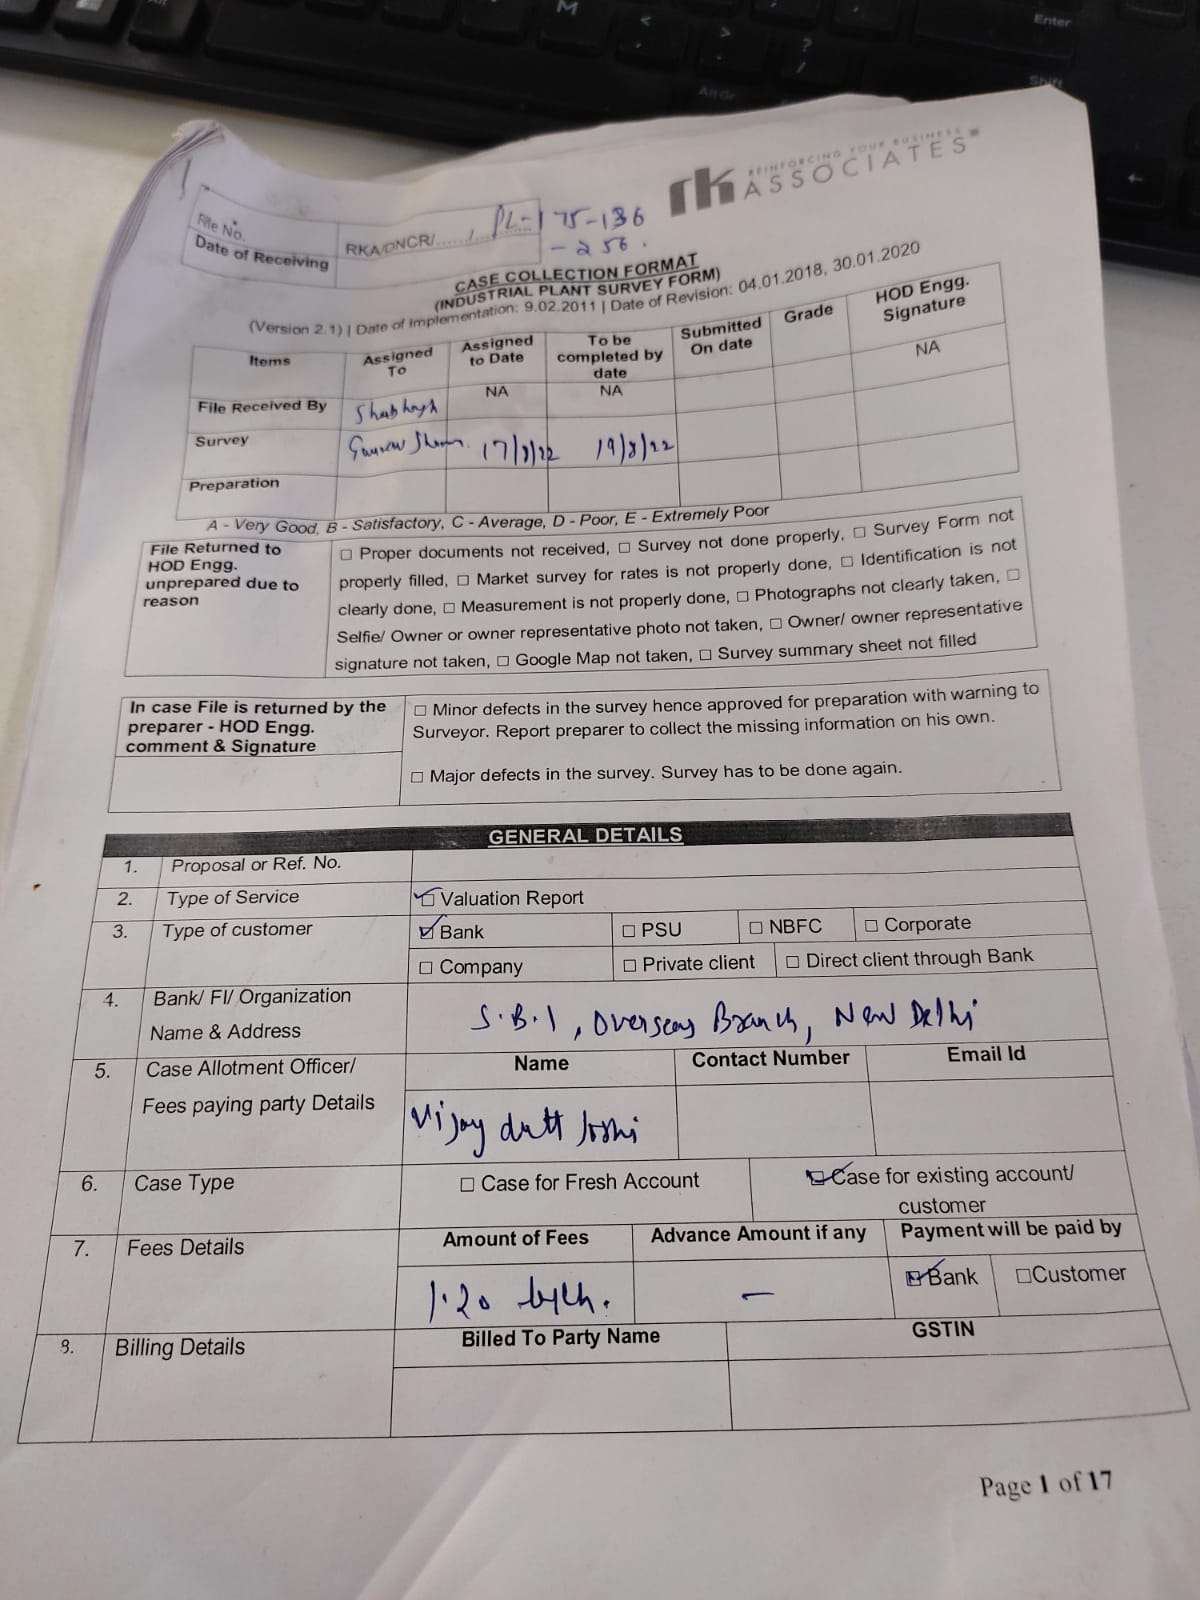 rk REINFORCING YOUR BUSINESS
ASSOCIATES
File No. RKA/DNCR/......,...... PL-175-136
Date of Receiving -256.
CASE COLLECTION FORMAT
(INDUSTRIAL PLANT SURVEY FORM)
(Version 2.1) | Date of Implementation: 9.02.2011 | Date of Revision: 04.01.2018, 30.01.2020
Items Assigned To Assigned to Date To be completed by date Submitted On date Grade HOD Engg. Signature
File Received By NA NA NA
Survey 17/8/22 19/8/22
Preparation
A - Very Good, B - Satisfactory, C - Average, D - Poor, E - Extremely Poor
File Returned to HOD Engg. unprepared due to reason
☐ Proper documents not received, ☐ Survey not done properly, ☐ Survey Form not
properly filled, ☐ Market survey for rates is not properly done, ☐ Identification is not
clearly done, ☐ Measurement is not properly done, ☐ Photographs not clearly taken, ☐
Selfie/ Owner or owner representative photo not taken, ☐ Owner/ owner representative
signature not taken, ☐ Google Map not taken, ☐ Survey summary sheet not filled
In case File is returned by the
preparer - HOD Engg.
comment & Signature
☐ Minor defects in the survey hence approved for preparation with warning to
Surveyor. Report preparer to collect the missing information on his own.
☐ Major defects in the survey. Survey has to be done again.
GENERAL DETAILS
1. Proposal or Ref. No.
2. Type of Service ☑ Valuation Report
3. Type of customer ☑ Bank ☐ PSU ☐ NBFC ☐ Corporate
☐ Company ☐ Private client ☐ Direct client through Bank
4. Bank/ FI/ Organization
Name & Address S.B.I, Overseas Branch, New Delhi
5. Case Allotment Officer/ Name Contact Number Email Id
Fees paying party Details Vijay datt Joshi
6. Case Type ☐ Case for Fresh Account ☑ Case for existing account/
customer
7. Fees Details Amount of Fees Advance Amount if any Payment will be paid by
1.20 – ☑ Bank ☐ Customer
8. Billing Details Billed To Party Name GSTIN
Page 1 of 17
M
Enter
Shift
Alt Gr
Alt
<
>
?
/